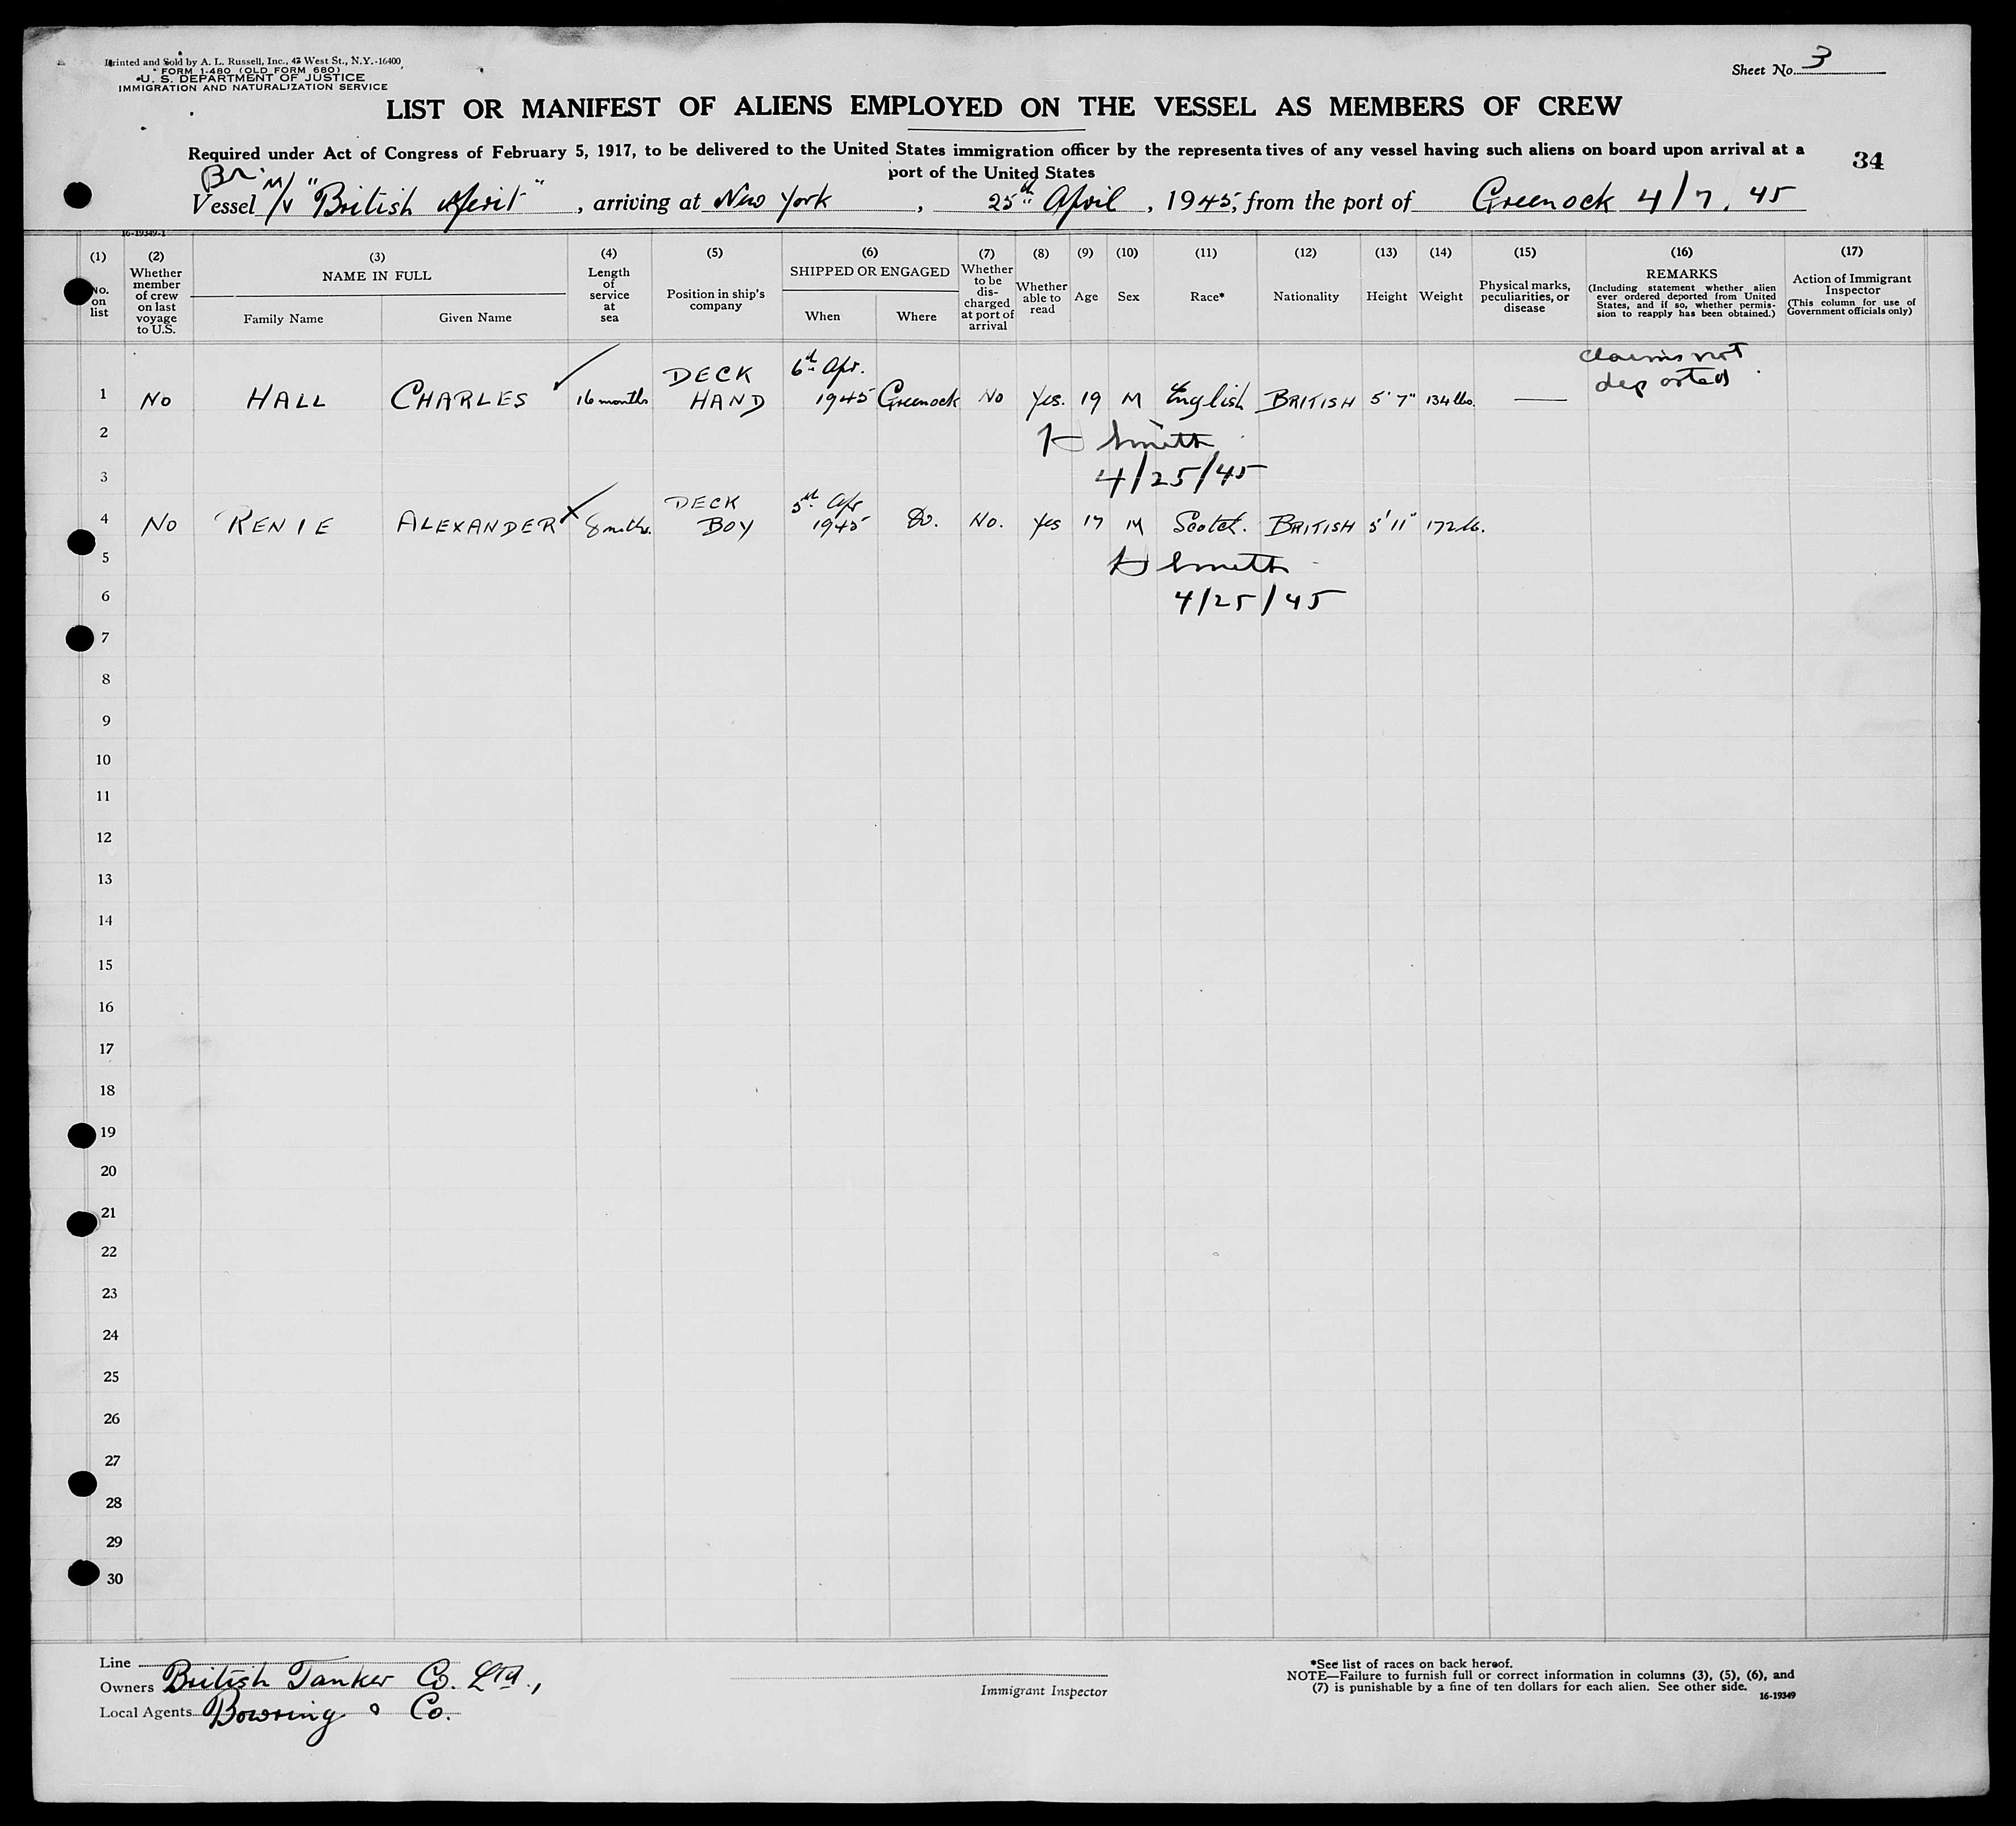 Printed and Sold by A. L. Russell, Inc., 43 West St., N.Y.-16400
FORM I-480 (OLD FORM 680)
U. S. DEPARTMENT OF JUSTICE
IMMIGRATION AND NATURALIZATION SERVICE
Sheet No. 3
LIST OR MANIFEST OF ALIENS EMPLOYED ON THE VESSEL AS MEMBERS OF CREW
Required under Act of Congress of February 5, 1917, to be delivered to the United States immigration officer by the representatives of any vessel having such aliens on board upon arrival at a
port of the United States
34
Br.
Vessel M/V "British Merit", arriving at New York, 25th April, 1945, from the port of Greenock 4/7.45
16-19349-1
(1) No. on list
(2) Whether member of crew on last voyage to U.S.
(3) NAME IN FULL
Family Name Given Name
(4) Length of service at sea
(5) Position in ship's company
(6) SHIPPED OR ENGAGED
When Where
(7) Whether to be discharged at port of arrival
(8) Whether able to read
(9) Age
(10) Sex
(11) Race*
(12) Nationality
(13) Height
(14) Weight
(15) Physical marks, peculiarities, or disease
(16) REMARKS
(Including statement whether alien ever ordered deported from United States, and if so, whether permission to reapply has been obtained.)
(17) Action of Immigrant Inspector
(This column for use of Government officials only)
1 No HALL CHARLES 16 months DECK HAND 6th Apr. 1945 Greenock No Yes. 19 M English BRITISH 5' 7" 134 lbs. — claims not deported
2 Smith
3 4/25/45
4 No RENIE ALEXANDER 8 mths. DECK BOY 5th Apr 1945 Do. No. Yes 17 M Scotch. BRITISH 5' 11" 172 lb.
5 Smith
6 4/25/45
7
8
9
10
11
12
13
14
15
16
17
18
19
20
21
22
23
24
25
26
27
28
29
30
Line
Owners British Tanker Co. Ltd.,
Local Agents Bowring & Co.
Immigrant Inspector
*See list of races on back hereof.
NOTE—Failure to furnish full or correct information in columns (3), (5), (6), and
(7) is punishable by a fine of ten dollars for each alien. See other side.
16-19349